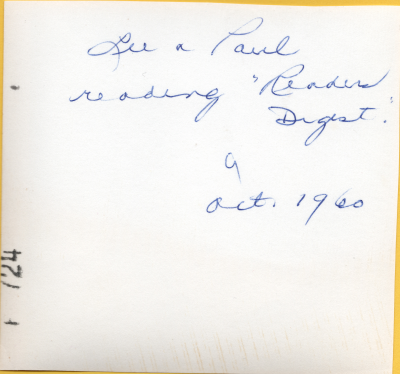 Lee a Paul
reading "Readers
Digest."
9
Oct. 1960
124